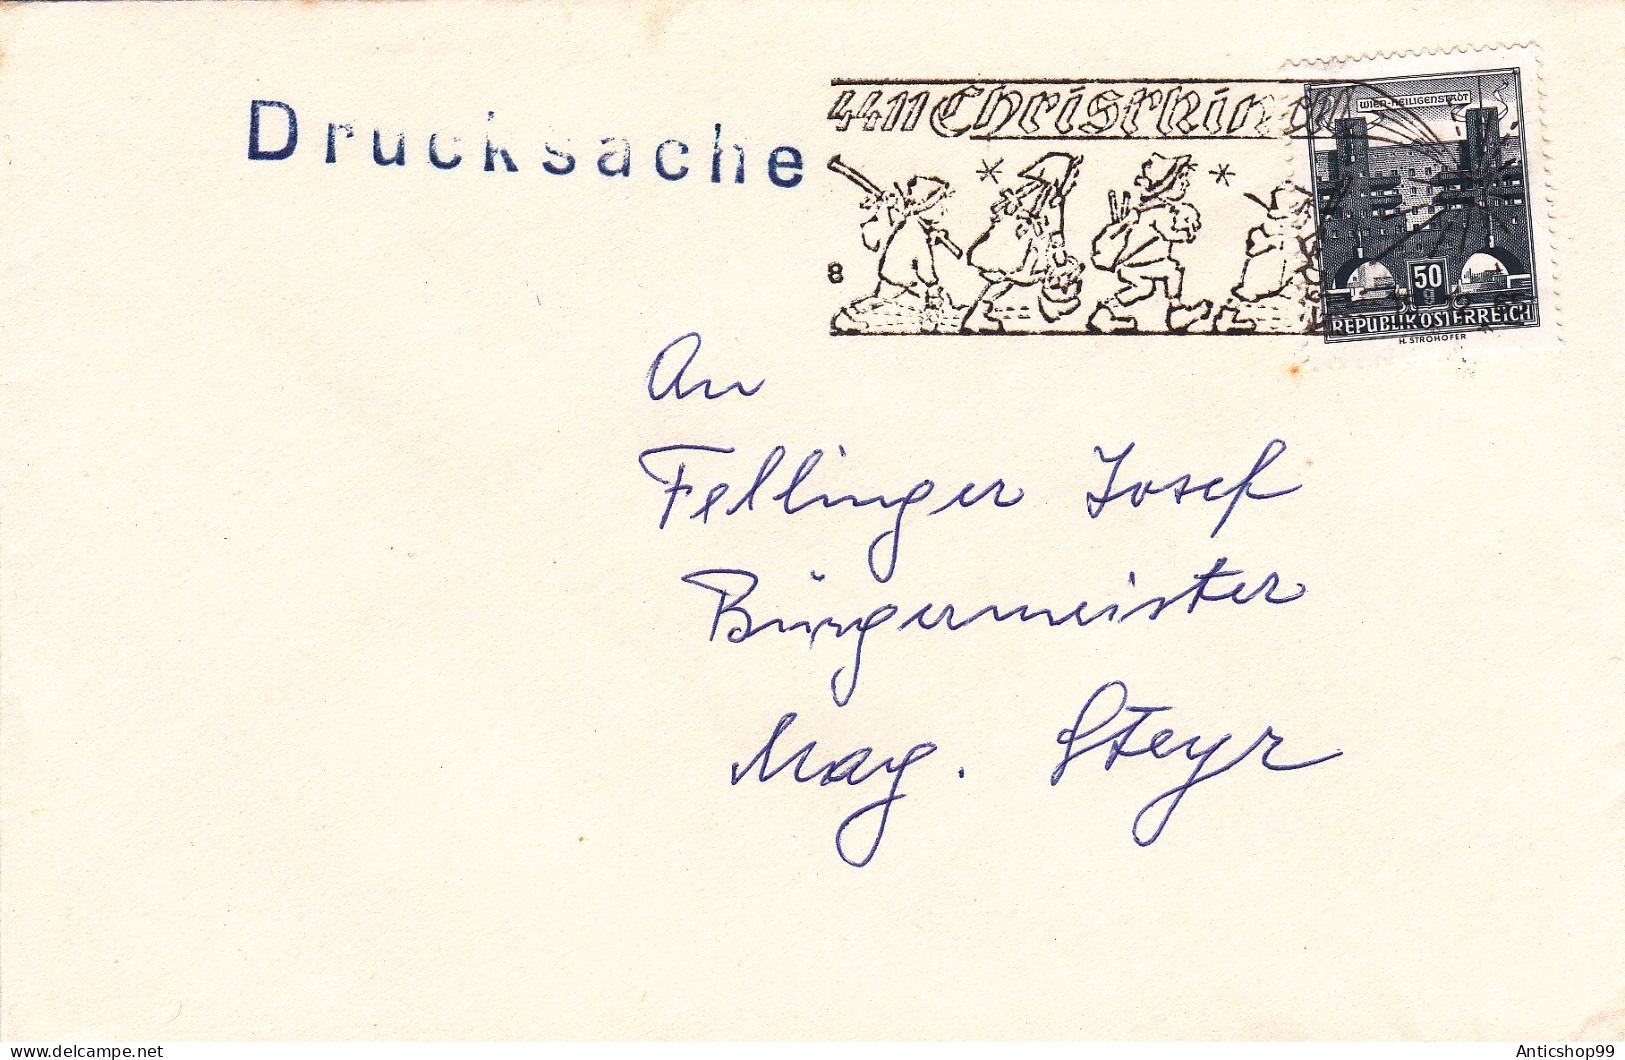 Drucksache
4411 Christkindl
8
WIEN-HEILIGENSTADT
50
g
REPUBLIK OSTERREICH
H. STROHOFER
An
Fellinger Josef
Bürgermeister
Mag. Steyr
Anticshop99